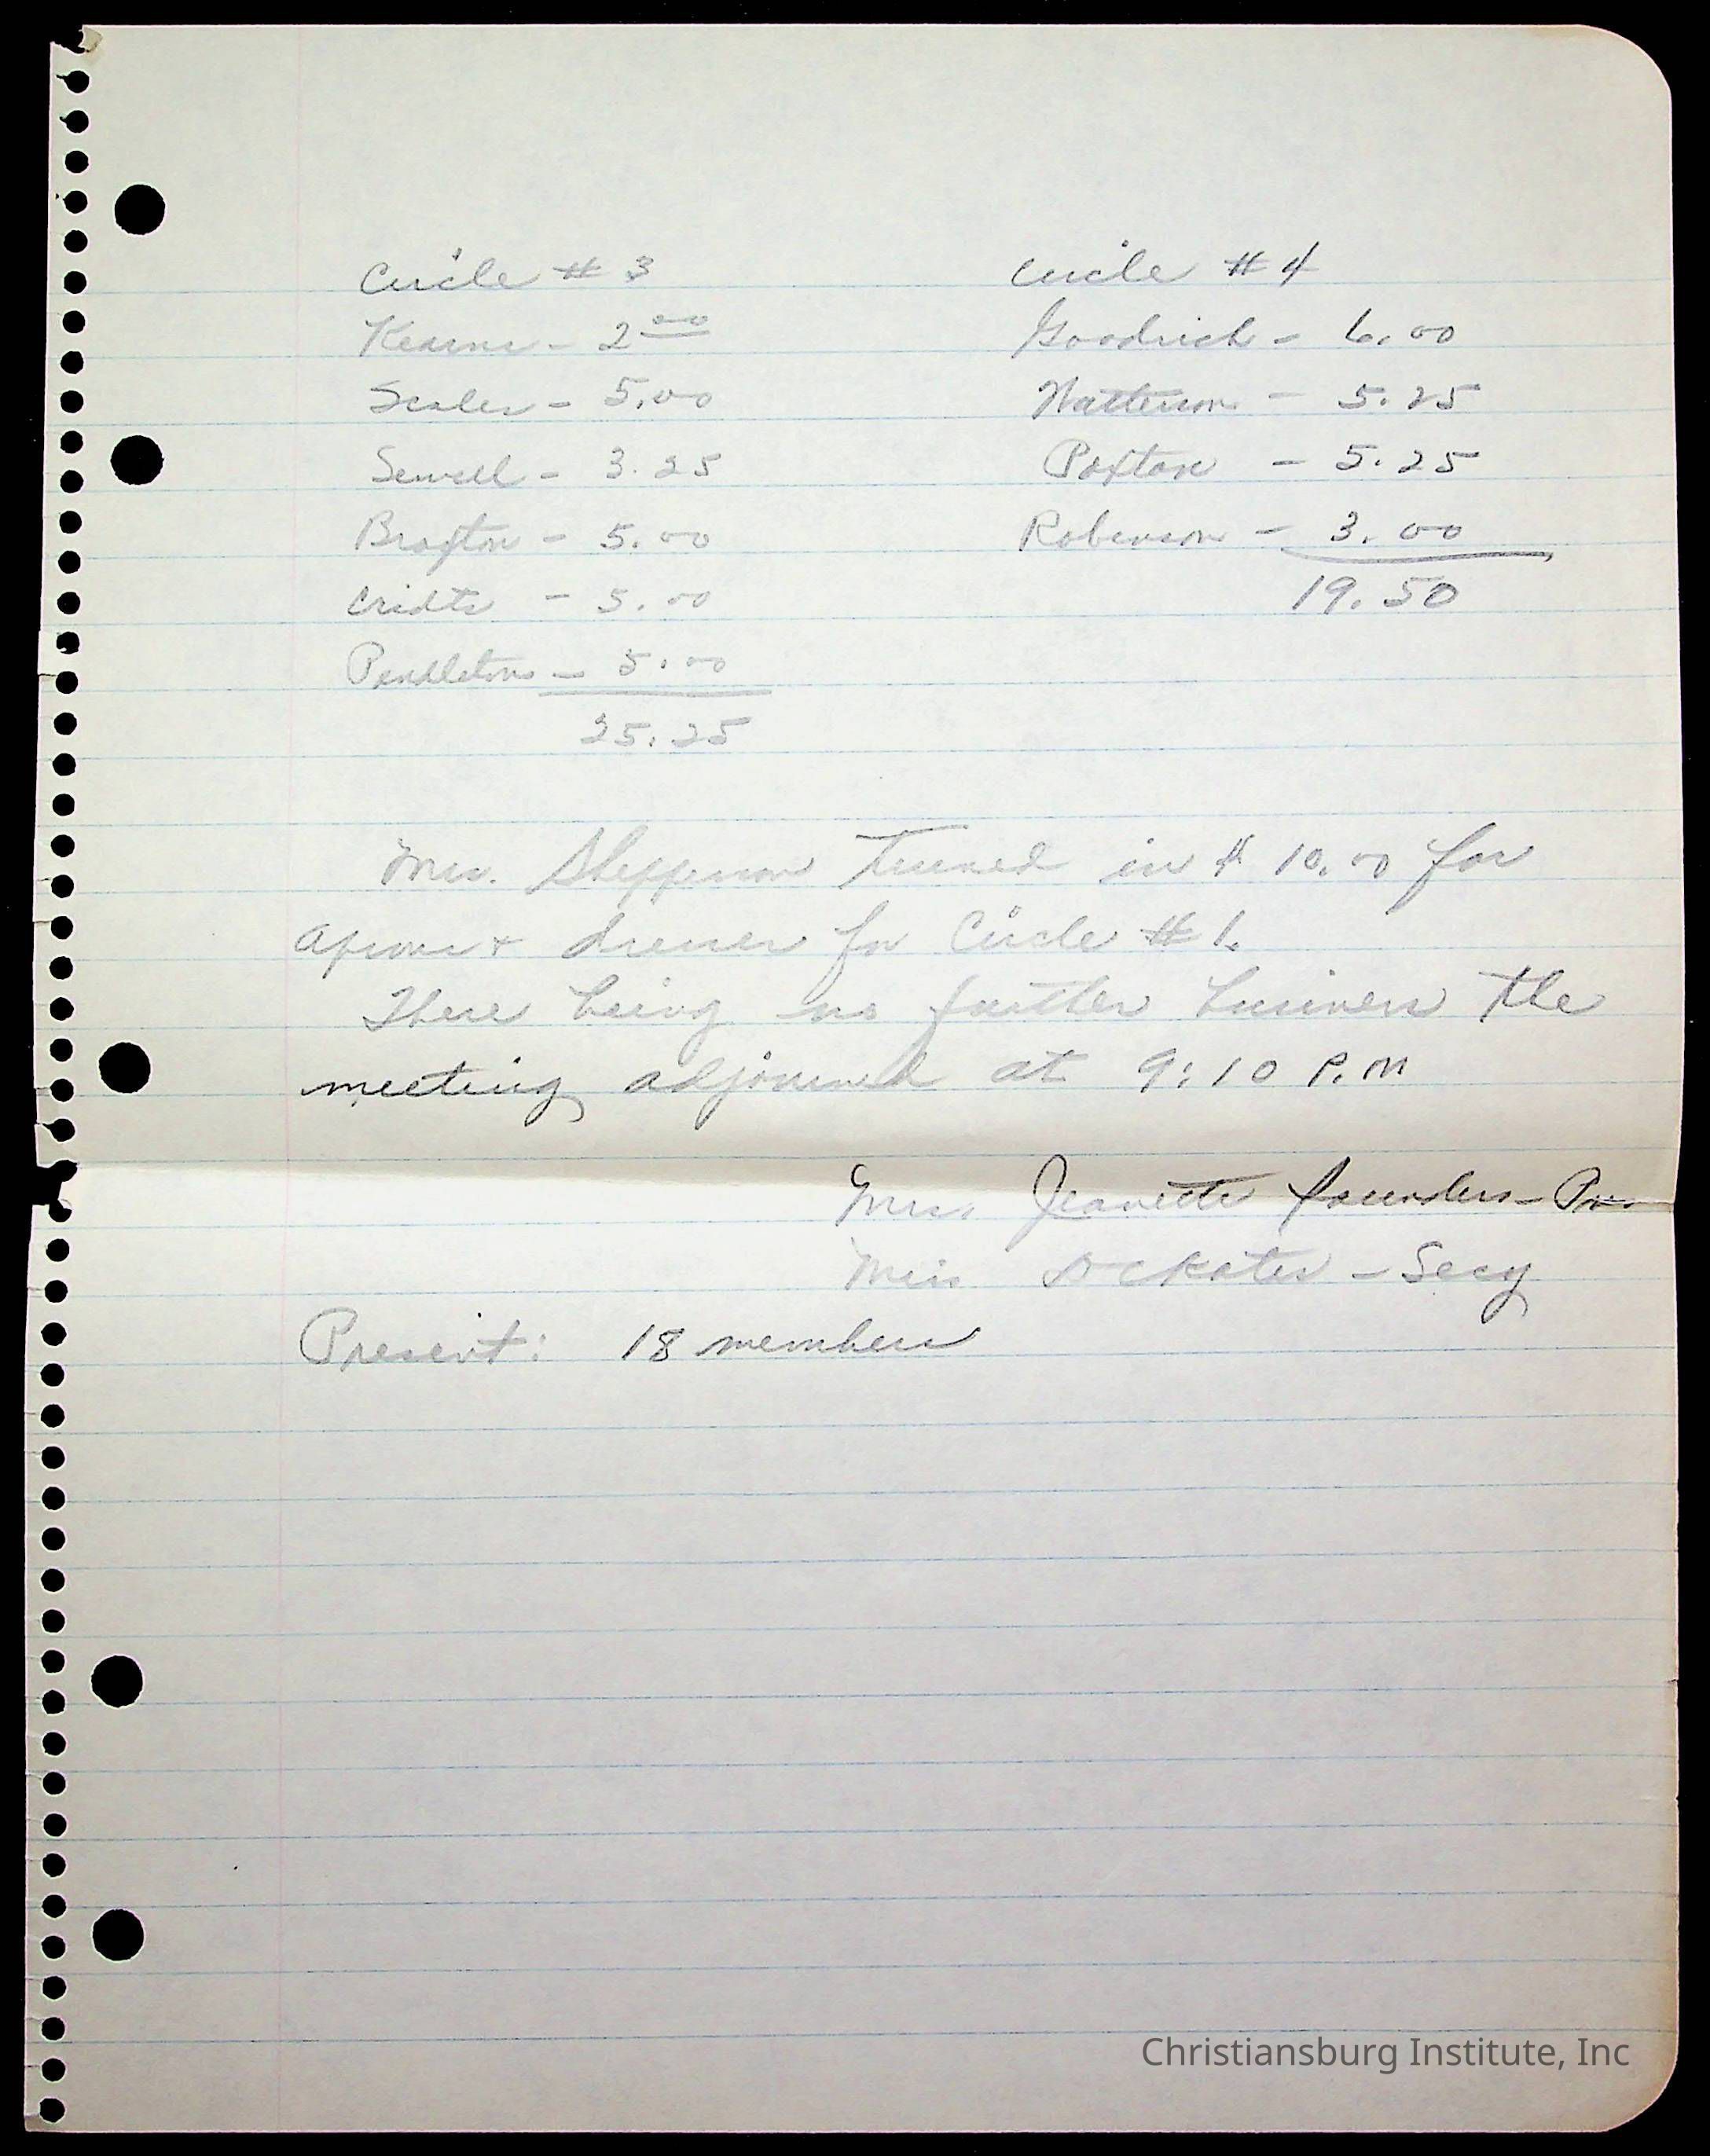 Circle # 3
Kearns - 2 00
Scales - 5.00
Sewell - 3.25
Braxton - 5.00
- 5.00
Pendleton - 5.00
25.25
Circle # 4
Goodrich - 6.00
Patterson - 5.25
Paxton - 5.25
Roberson - 3.00
19.50
Mrs. Stepperson turned in $ 10.00 for
aprons & dresses for Circle # 1.
There being no further business the
meeting adjourned at 9:10 P.M
Mrs. Jeanette Saunders - Pres.
Miss - Secy
Present: 18 members
Christiansburg Institute, Inc